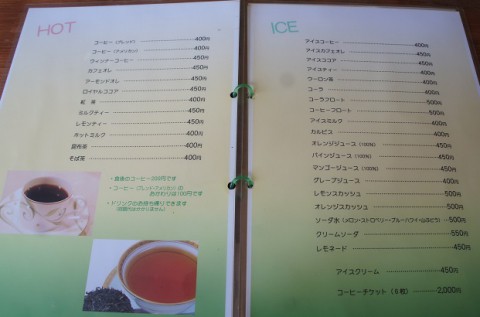 HOT
コーヒー（ブレンド） 400円
コーヒー（アメリカン） 400円
ウィンナーコーヒー 450円
カフェオレ 450円
アーモンドオレ 450円
ロイヤルココア 450円
紅 茶 400円
ミルクティー 450円
レモンティー 450円
ホットミルク 400円
昆布茶 400円
そば茶 400円
・食後のコーヒー200円です
・コーヒー（ブレンド・アメリカン）の
おかわりは100円です
・ドリンクのお持ち帰りできます
ICE
アイスコーヒー 400円
アイスカフェオレ 450円
アイスココア 450円
アイスティー 400円
ウーロン茶 400円
コーラ 400円
コーラフロート 500円
コーヒーフロート 500円
アイスミルク 400円
カルピス 400円
オレンジジュース（100%） 450円
パインジュース（100%） 450円
マンゴージュース（100%） 450円
グレープジュース 400円
レモンスカッシュ 500円
オレンジスカッシュ 500円
ソーダ水（メロン・ストロベリー・ブルーハワイ・山ぶどう） 500円
クリームソーダ 550円
レモネード 450円
アイスクリーム 450円
コーヒーチケット 2,000円